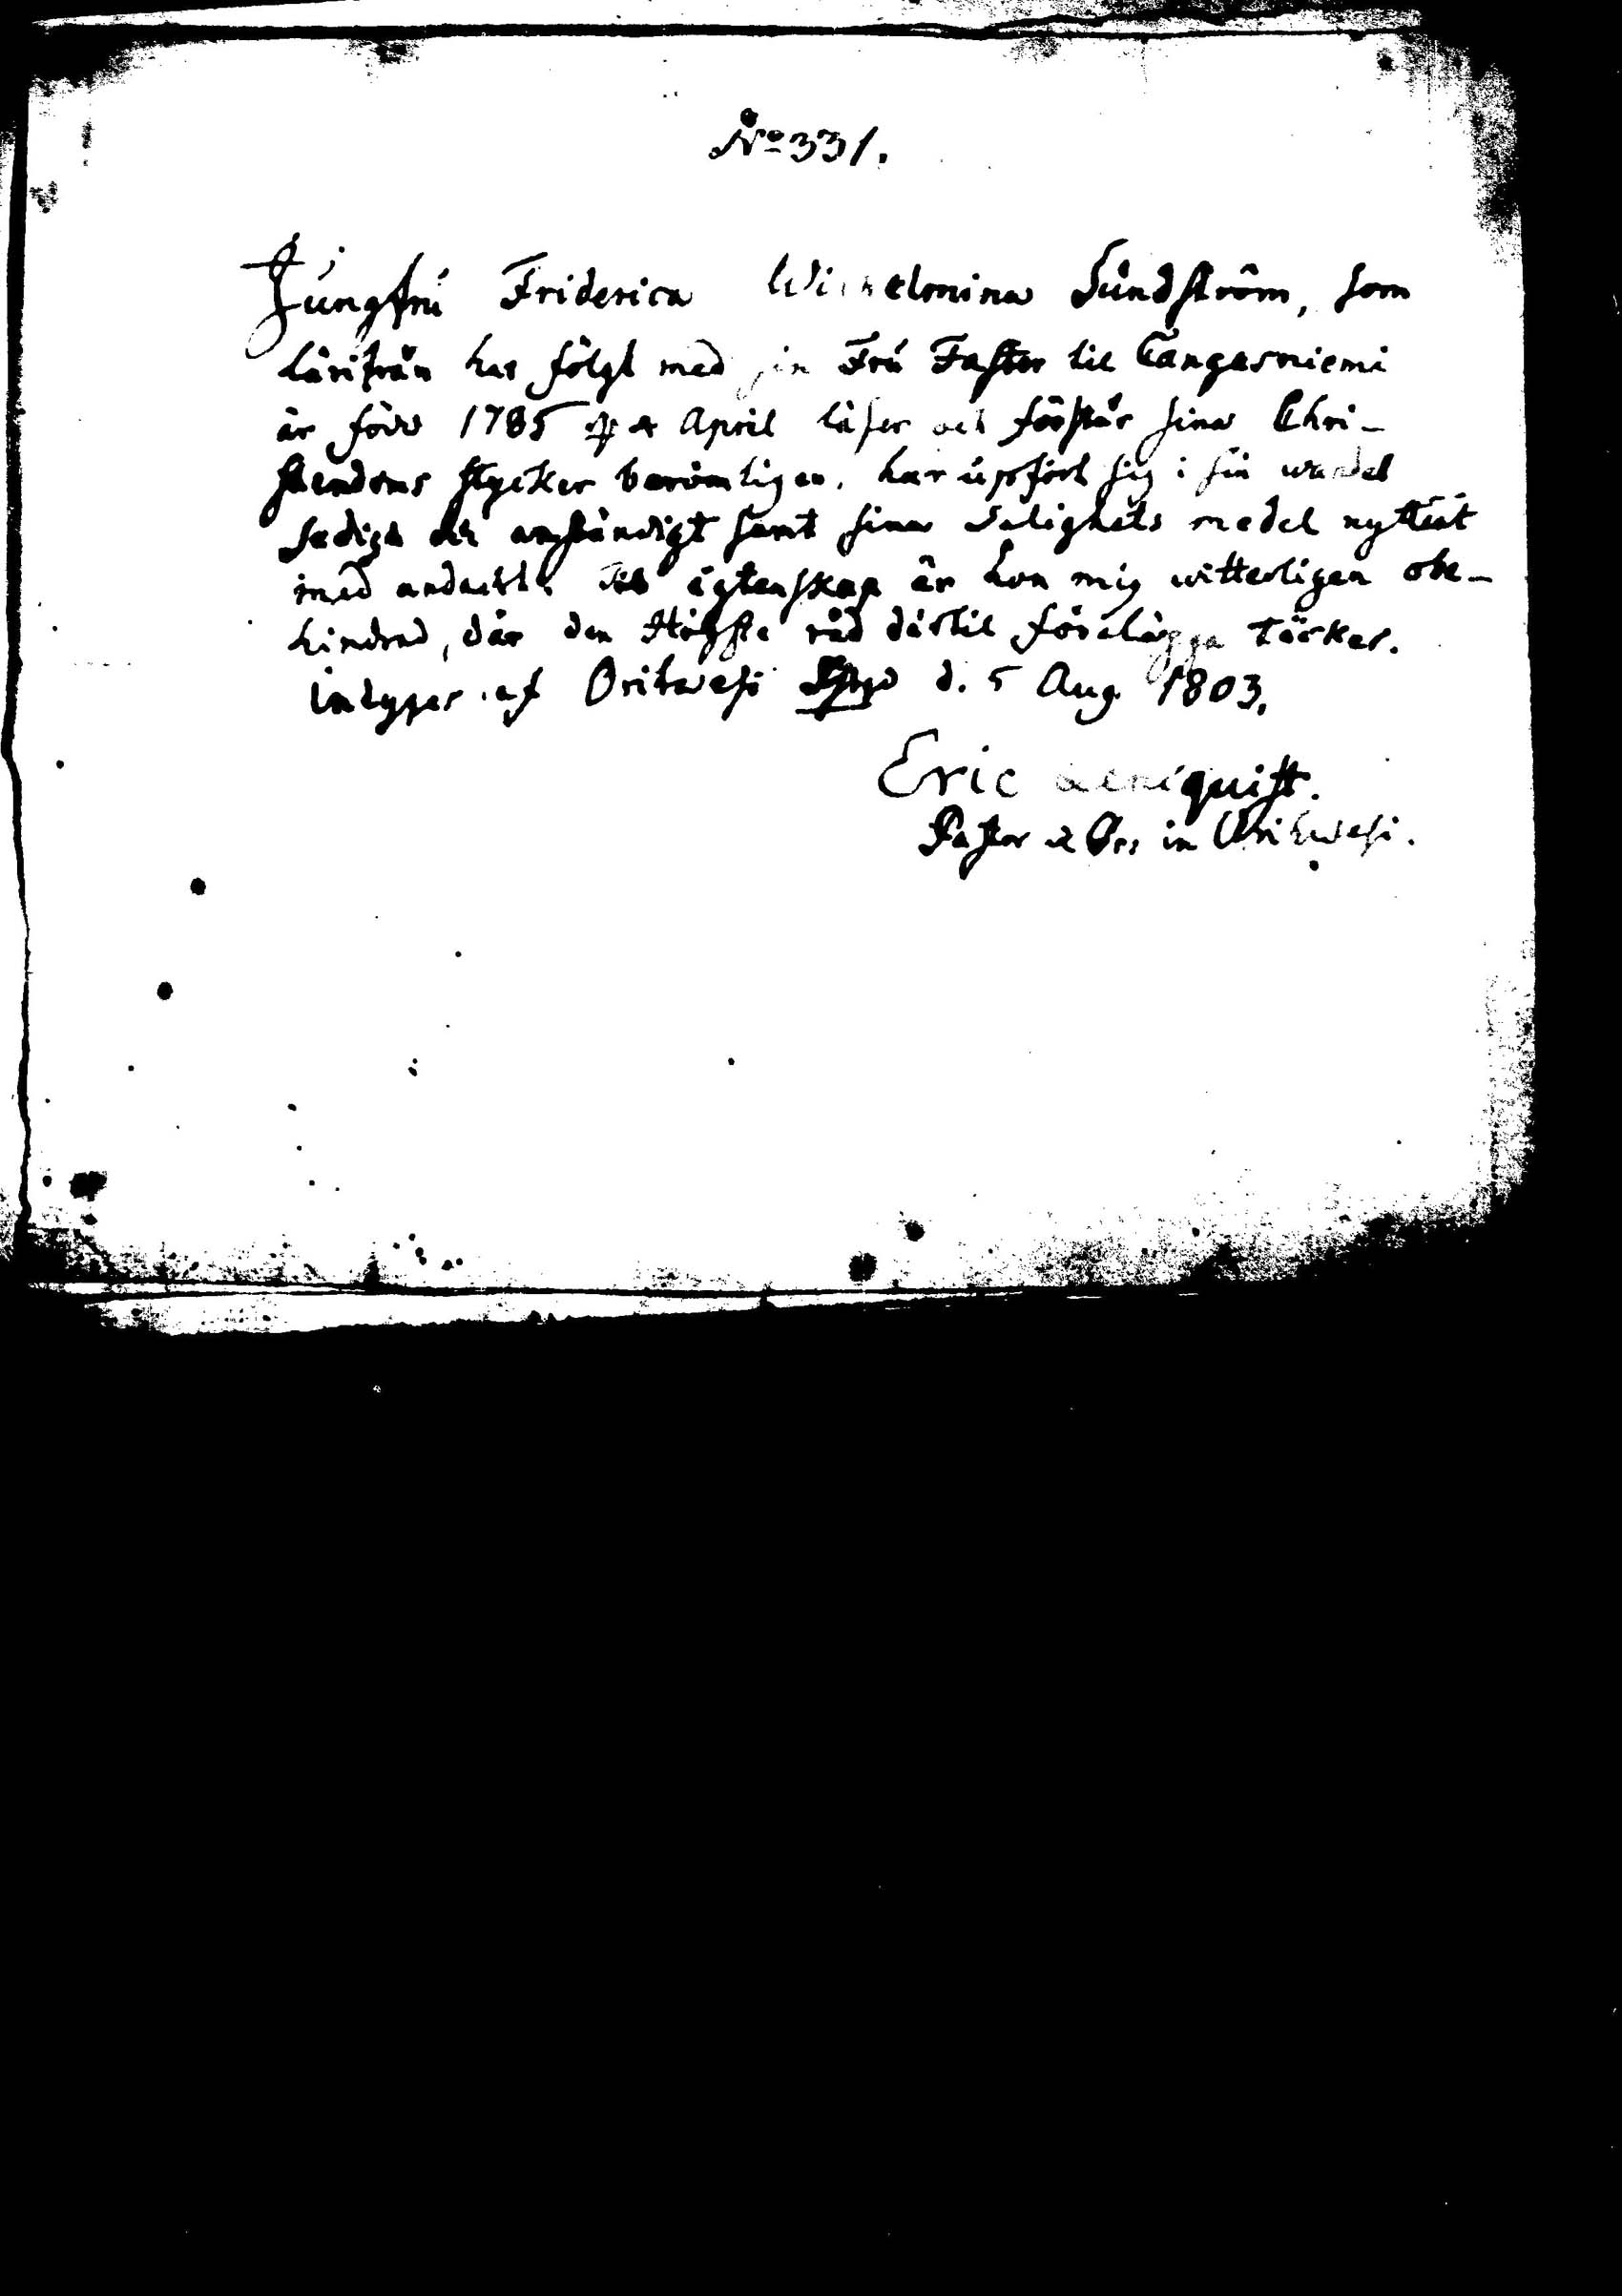 No 331.
Jungfru Friderica Wilhelmina Sundström, som
härifrån har följt med sin Fru Faster til Cangasniemi
är född 1785 d 4 April läser och förstår sina Chri-
stendoms stycker berömligen, har upfört sig i sin wandel
sedigt och anständigt samt sina Salighets medel nyttiat
med andackt. Til ägtenskap är hon mig witterligen obe-
hindrad, där den Högste råd därtil förelägga täckes.
intyges af Orihwesi d. 5 Aug 1803.
Eric Lencquist.
Pastor & Prs in Orihwesi.